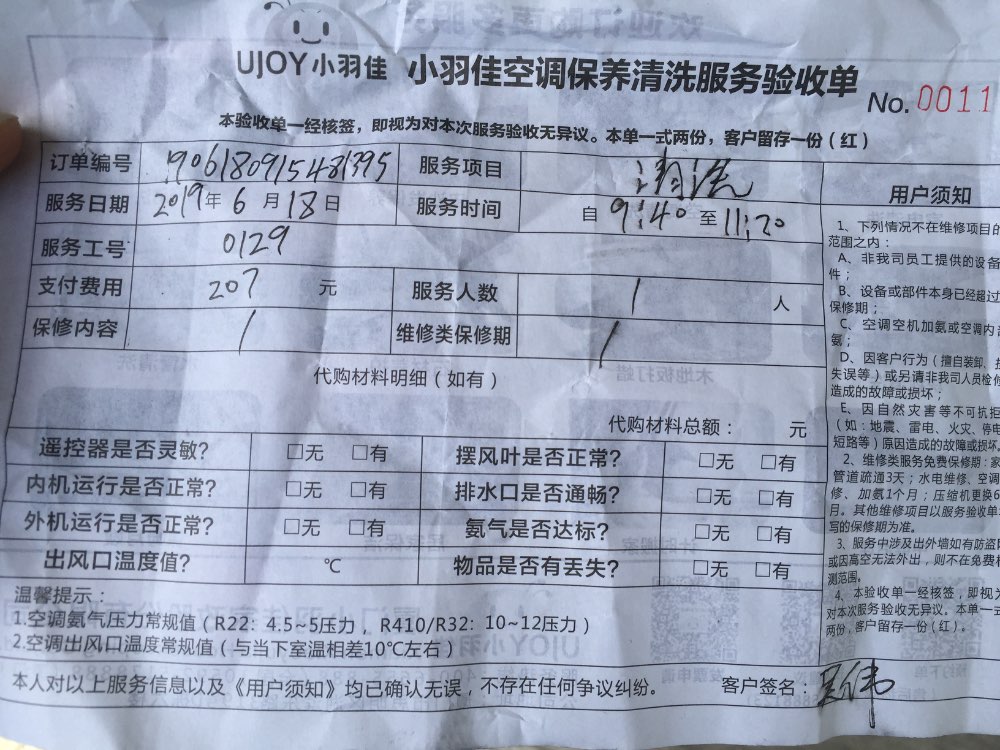 UJOY小羽佳 小羽佳空调保养清洗服务验收单
No. 0011
本验收单一经核签，即视为对本次服务验收无异议。本单一式两份，客户留存一份（红）
订单编号 1906180915481395 服务项目 清洗
服务日期 2019年6月18日 服务时间 自9:40至11:20
服务工号 0129
支付费用 207 元 服务人数 1 人
保修内容 / 维修类保修期 /
代购材料明细（如有）
代购材料总额： 元
遥控器是否灵敏? □无 □有 摆风叶是否正常? □无 □有
内机运行是否正常? □无 □有 排水口是否通畅? □无 □有
外机运行是否正常? □无 □有 氨气是否达标? □无 □有
出风口温度值? ℃ 物品是否有丢失? □无 □有
温馨提示：
1.空调氨气压力常规值（R22：4.5~5压力，R410/R32：10~12压力）
2.空调出风口温度常规值（与当下室温相差10℃左右）
本人对以上服务信息以及《用户须知》均已确认无误，不存在任何争议纠纷。 客户签名：
用户须知
1、下列情况不在维修项目的
范围之内：
A、非我司员工提供的设备
件；
B、设备或部件本身已经超过
保修期；
C、空调空机加氨或空调内
氨；
D、因客户行为（擅自装卸、
失误等）或另请非我司人员检修
造成的故障或损坏；
E、因自然灾害等不可抗拒
（如：地震、雷电、火灾、停电
短路等）原因造成的故障或损坏
2、维修类服务免费保修期：家
管道疏通3天；水电维修、空调
修、加氨1个月；压缩机更换6
月。其他维修项目以服务验收单
写的保修期为准。
3、服务中涉及出外墙如有防盗
或因高空无法外出，则不在免费
测范围。
4、本验收单一经核签，即视为
对本次服务验收无异议。本单一
两份，客户留存一份（红）。